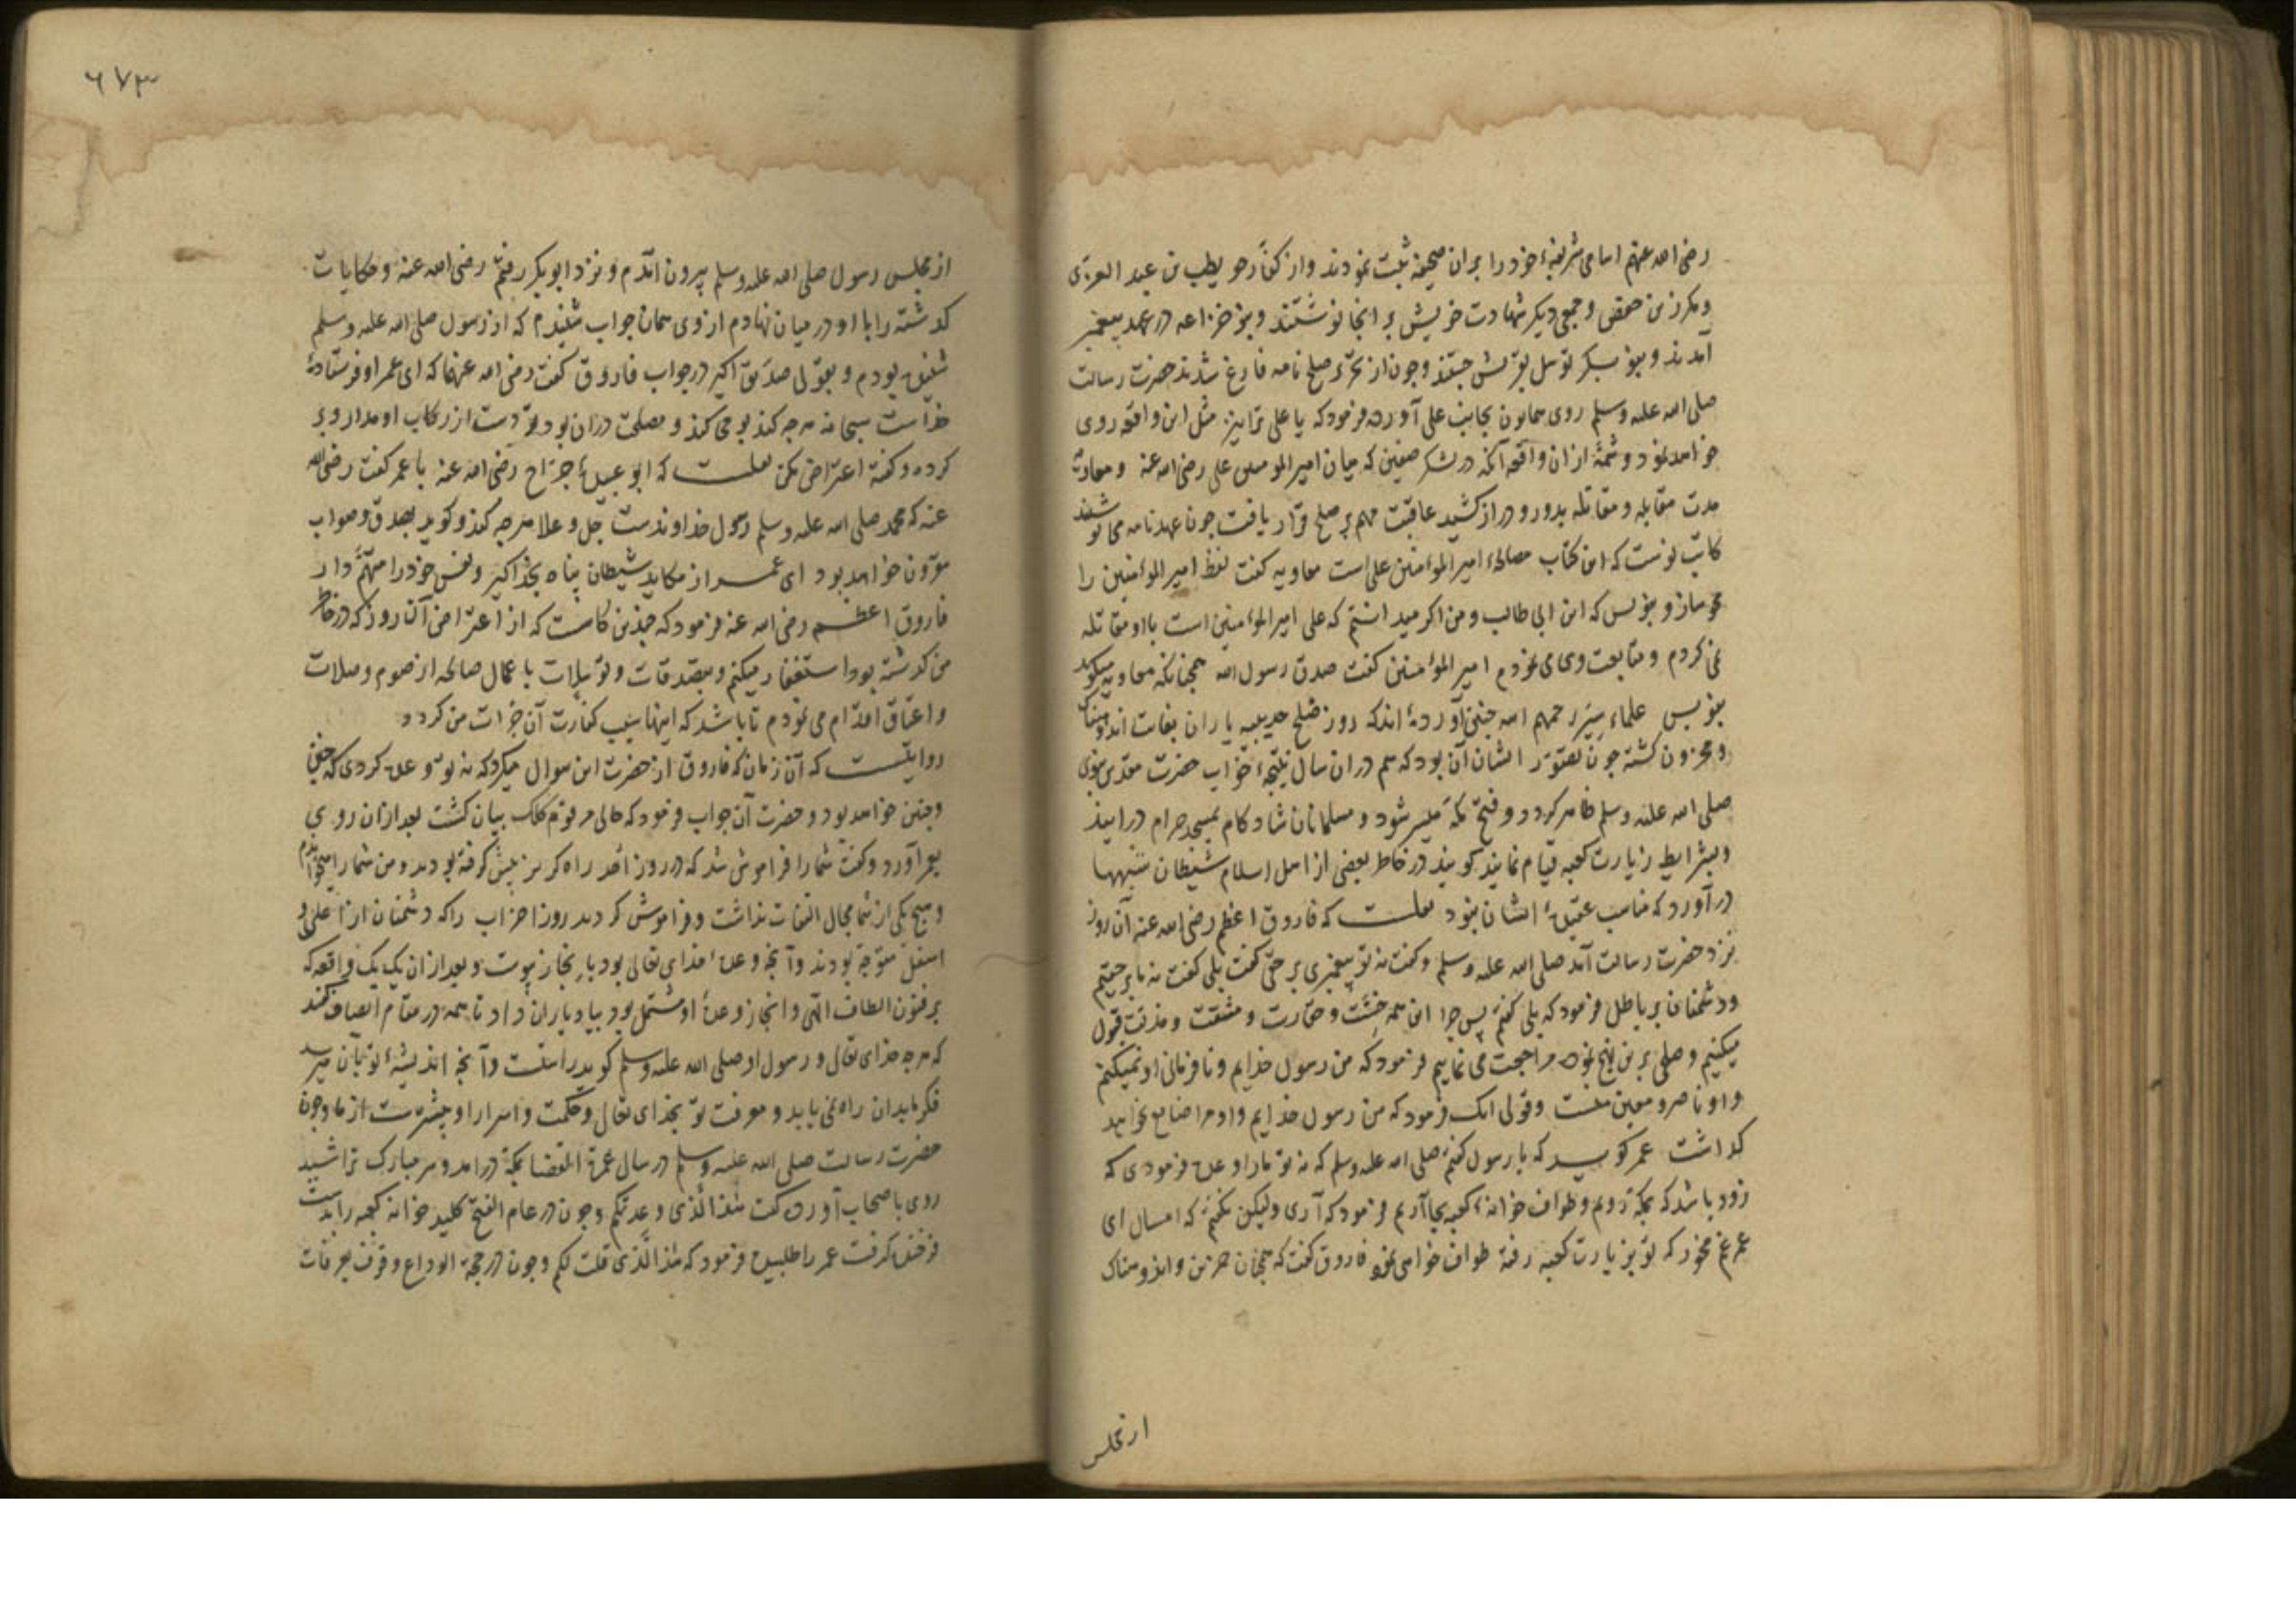 رضی الله عنهم اسامی شریفهٔ خود را بران صحیفه ثبت نمودند و از کفار حویطب بن عبد العزی
و مکرز بن حفص و جمعی دیکر شهادت خویش بر انجا نوشتند و بنو خزاعه در عهد پیغمبر
آمدند و بنو بکر توسل بقریش جستند و چون از تحریر صلح نامه فارغ شدند حضرت رسالت
صلی الله علیه وسلم روی همایون بجانب علی آورده فرمود که یا علی ترا نیز مثل این واقعه روی
خواهد نمود و شمهٔ از ان واقعه آنکه در لشکر صفین که میان امیر المومنین علی رضی الله عنه و معاویه
مدت مقابله و مقاتله بدور و دراز کشید عاقبت مهم بر صلح قرار یافت چون عهدنامه می نوشتند
کاتب نوشت که این کتاب مصالحهٔ امیر المؤمنین علی است معاویه کفت لفظ امیر المؤمنین را
محو ساز و بنویس که ابن ابی طالب و من اکر میدانستم که علی امیر المؤمنین است با او مقاتله
نمی کردم و متابعت وی می نمودم امیر المؤمنین کفت صدق رسول الله همچنانکه معاویه میکوید
بنویس علماء سیر رحمهم الله چنین آورده اند که روز صلح حدیبیه یاران بغایت اندوهناک
و محزون کشته چون تصور ایشان آن بود که هم در ان سال نتیجهٔ خواب حضرت مقدس نبوی
صلی الله علیه وسلم ظاهر کردد و فتح مکه میسر شود و مسلمانان شاد کام بمسجد حرام درایند
و بشرایط زیارت کعبه قیام نمایند کویند در خاطر بعضی از اهل اسلام شیطان شبهها
در آورد که مناسب عقیدهٔ ایشان نبود نقلست که فاروق اعظم رضی الله عنه آن روز
نزد حضرت رسالت آمد صلی الله علیه وسلم و کفت نه تو پیغمبری بر حق کفت بلی کفت نه ما بر حقیم
و دشمنان بر باطل فرمود که بلی کفتم پس چرا این همه خست و حقارت و مشقت و مذلت قبول
میکنیم و صلح برین نهج نموده مراجعت می نماییم فرمود که من رسول خدایم و نافرمانی او نمیکنم
و او ناصر و معین منست و قولی انک فرمود که من رسول خدایم و او مرا ضایع نخواهد
کذاشت عمر کوید که یا رسول کفتم صلی الله علیه وسلم که نه تو مارا وعده فرمودی که
زود باشد که بمکه رویم و طواف خوانهٔ کعبه بجا آریم فرمود که آری ولیکن نکفتم که امسال ای
عمر غم مخور که تو بزیارت کعبه رفته طواف خواهی نمود فاروق کفت که همچنان حزین و اندوهناک
از مجلس
٦٧٣
از مجلس رسول صلی الله علیه وسلم بیرون آمدم و نزد ابو بکر رفتم رضی الله عنه و حکایات
کذشته را با او در میان نهادم از وی همان جواب شنیدم که از رسول صلی الله علیه وسلم
شنیده بودم و بقولی صدیق اکبر در جواب فاروق کفت رضی الله عنهما که ای عمر او فرستادهٔ
خداست سبحانه هر چه کند بوحی کند و مصلحت در ان بود و تو دست از رکاب او مدار و بر
کرده و کفته اعتراض مکن نقلست که ابو عبیدهٔ جراح رضی الله عنه با عمر کفت رضی الله
عنه که محمد صلی الله علیه وسلم رسول خداوندست جل و علا هر چه کند و کوید بصدق و صواب
مقرون خواهد بود ای عمر از مکاید شیطان پناه بخدا کیر و نفس خود را متهم دار
فاروق اعظم رضی الله عنه فرمود که چندین کاهست که از اعتراض آن روز که در خاطر
من کذشته بود استغفار میکنم و بتصدقات و توسلات باعمال صالحه از صوم و صلات
و اعتاق اقدام می نمودم تا باشد که اینها سبب کفارت آن جرات من کردد
روایتست که آن زمان که فاروق از حضرت این سوال میکرد که نه تو وعده کردی که چنین
و چنین خواهد بود و حضرت آن جواب فرمود که حالی مرقوم کلک بیان کشت بعد ازان روی
بعمر آورد و کفت شما را فراموش شد که در روز احد راه کریز پیش کرفته بودید و من شما را میخواندم
و هیچ یکی از شما مجال التفات نداشت و فراموش کردید روز احزاب را که دشمنان از اعلی و
اسفل متوجه بودند و آنچه وعدهٔ خدای تعالی بود بانجاز پیوست و بعد ازان یک یک واقعه که
بر فنون الطاف الهی و انجاز وعدهٔ او مشتمل بود بیاد یاران داد تا همه در مقام انصاف کفتند
که هر چه خدای تعالی و رسول او صلی الله علیه وسلم کوید راستست و آنچه اندیشهٔ تو بآن میرسد
فکر ما بدان راه نمی یابد و معرفت تو بخدای تعالی و حکمت و اسرار او بیشترست از ما و چون
حضرت رسالت صلی الله علیه وسلم در سال عمرة القضا بمکه درامد و سر مبارک تراشید
روی باصحاب آورده کفت هذا الذی وعدتکم و چون در عام الفتح کلید خوانه کعبه را بدست
فرخنده کرفت عمر را طلبیده فرمود که هذا الذی قلت لکم و چون در حجة الوداع وقوف بعرفات